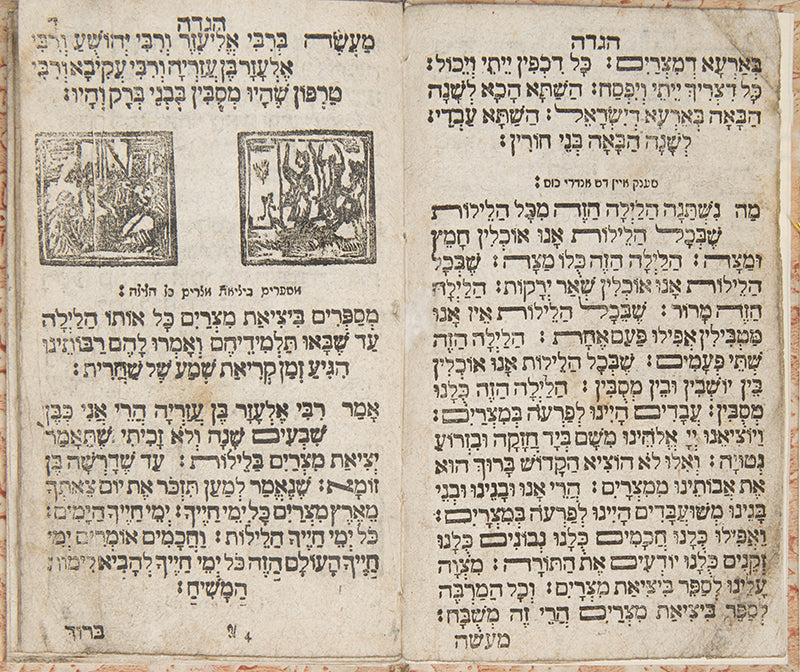 הגדה
בְּאַרְעָא דְמִצְרַיִם: כָּל דִכְפִין יֵיתֵי וְיֵכוֹל:
כָּל דִצְרִיךְ יֵיתֵי וְיִפְסַח: הַשַׁתָּא הָכָא לְשָׁנָה
הַבָּאָה בְּאַרְעָא דְיִשְׂרָאֵל: הַשַׁתָּא עַבְדֵי:
לְשָׁנָה הַבָּאָה בְּנֵי חוֹרִין:
מענק איין דט אנדרי כוס:
מַה נִשְׁתַּנָה הַלַיְלָה הַזֶה מִכָּל הַלֵילוֹת
שֶׁבְּכָל הַלֵילוֹת אָנוּ אוֹכְלִין חָמֵץ
וּמַצָה: הַלַיְלָה הַזֶה כֻּלוֹ מַצָה: שֶׁבְּכָל
הַלֵילוֹת אָנוּ אוֹכְלִין שְׁאַר יְרָקוֹת: הַלַיְלָה
הַזֶה מָרוֹר: שֶׁבְּכָל הַלֵילוֹת אֵין אָנוּ
מַטְבִּילִין אֲפִילוּ פַּעַם אֶחָת: הַלַיְלָה הַזֶה
שְׁתֵּי פְּעָמִים: שֶׁבְּכָל הַלֵילוֹת אָנוּ אוֹכְלִין
בֵּין יוֹשְׁבִין וּבֵין מְסֻבִּין: הַלַיְלָה הַזֶה כֻּלָנוּ
מְסֻבִּין: עֲבָדִים הָיִינוּ לְפַרְעֹה בְּמִצְרָיִם:
וַיוֹצִיאֵנוּ יְיָ אֱלֹהֵינוּ מִשָׁם בְּיָד חֲזָקָה וּבִזְרוֹעַ
נְטוּיָה: וְאִלוּ לֹא הוֹצִיא הַקָדוֹשׁ בָּרוּךְ הוּא
אֶת אֲבוֹתֵינוּ מִמִצְרַיִם: הֲרֵי אָנוּ וּבָנֵינוּ וּבְנֵי
בָנֵינוּ מְשׁוּעְבָּדִים הָיִינוּ לְפַרְעֹה בְּמִצְרָיִם:
וַאֲפִילוּ כֻּלָנוּ חֲכָמִים כֻּלָנוּ נְבוֹנִים כֻּלָנוּ
זְקֵנִים כֻּלָנוּ יוֹדְעִים אֶת הַתּוֹרָה: מִצְוָה
עָלֵינוּ לְסַפֵּר בִּיצִיאַת מִצְרָיִם: וְכָל הַמַרְבֶּה
לְסַפֵּר בִּיצִיאַת מִצְרַיִם הֲרֵי זֶה מְשֻׁבָּח:
מעשה
הגדה
מַעֲשֶׂה בְּרַבִּי אֱלִיעֶזֶר וְרַבִּי יְהוֹשֻׁעַ וְרַבִּי
אֶלְעָזָר בֶּן עֲזַרְיָה וְרַבִּי עֲקִיבָא וְרַבִּי
טַרְפוֹן שֶׁהָיוּ מְסֻבִּין בִּבְנֵי בְרַק וְהָיוּ:
מספרים ביציאת מצרים כל הלילה:
מְסַפְּרִים בִּיצִיאַת מִצְרַיִם כָּל אוֹתוֹ הַלַיְלָה
עַד שֶׁבָּאוּ תַּלְמִידֵיהֶם וְאָמְרוּ לָהֶם רַבּוֹתֵינוּ
הִגִיעַ זְמַן קְרִיאַת שְׁמַע שֶׁל שַׁחֲרִית:
אָמַר רַבִּי אֶלְעָזָר בֶּן עֲזַרְיָה הֲרֵי אֲנִי כְּבֶן
שִׁבְעִים שָׁנָה וְלֹא זָכִיתִי שֶׁתֵּאָמֵר
יְצִיאַת מִצְרַיִם בַּלֵילוֹת: עַד שֶׁדְרָשָׁה בֶּן
זוֹמָא: שֶׁנֶאֱמַר לְמַעַן תִּזְכֹּר אֶת יוֹם צֵאתְךָ
מֵאֶרֶץ מִצְרַיִם כָּל יְמֵי חַיֶיךָ: יְמֵי חַיֶיךָ הַיָמִים:
כֹּל יְמֵי חַיֶיךָ הַלֵילוֹת: וַחֲכָמִים אוֹמְרִים יְמֵי
חַיֶיךָ הָעוֹלָם הַזֶה כֹּל יְמֵי חַיֶיךָ לְהָבִיא לִימוֹת
הַמָשִׁיחַ:
4
ברוך